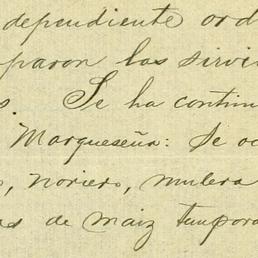 dependiente ord
paron las sirvi
s. Se ha contin
Marqueseña: Se oc
, noriero, mulera
as de maiz tempora